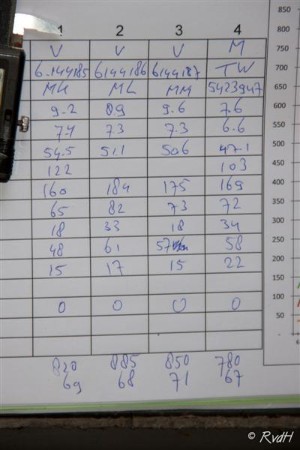 1 2 3 4
V V V M
6.144185 6144186 6144187 TW
ML ML MM 5423947
9.2 09 9.6 7.6
7.4 7.3 7.3 6.6
54.5 51.1 50.6 47.1
122 103
160 184 175 169
65 82 73 72
18 33 18 34
48 61 57 58
15 17 15 22
0 0 0 0
820 885 850 780
69 68 71 67
850
800
750
700
650
600
550
500
450
400
350
300
250
200
150
100
50
0
© RvdH